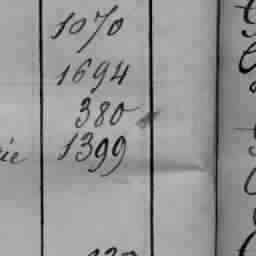 1070
1694
380
1399